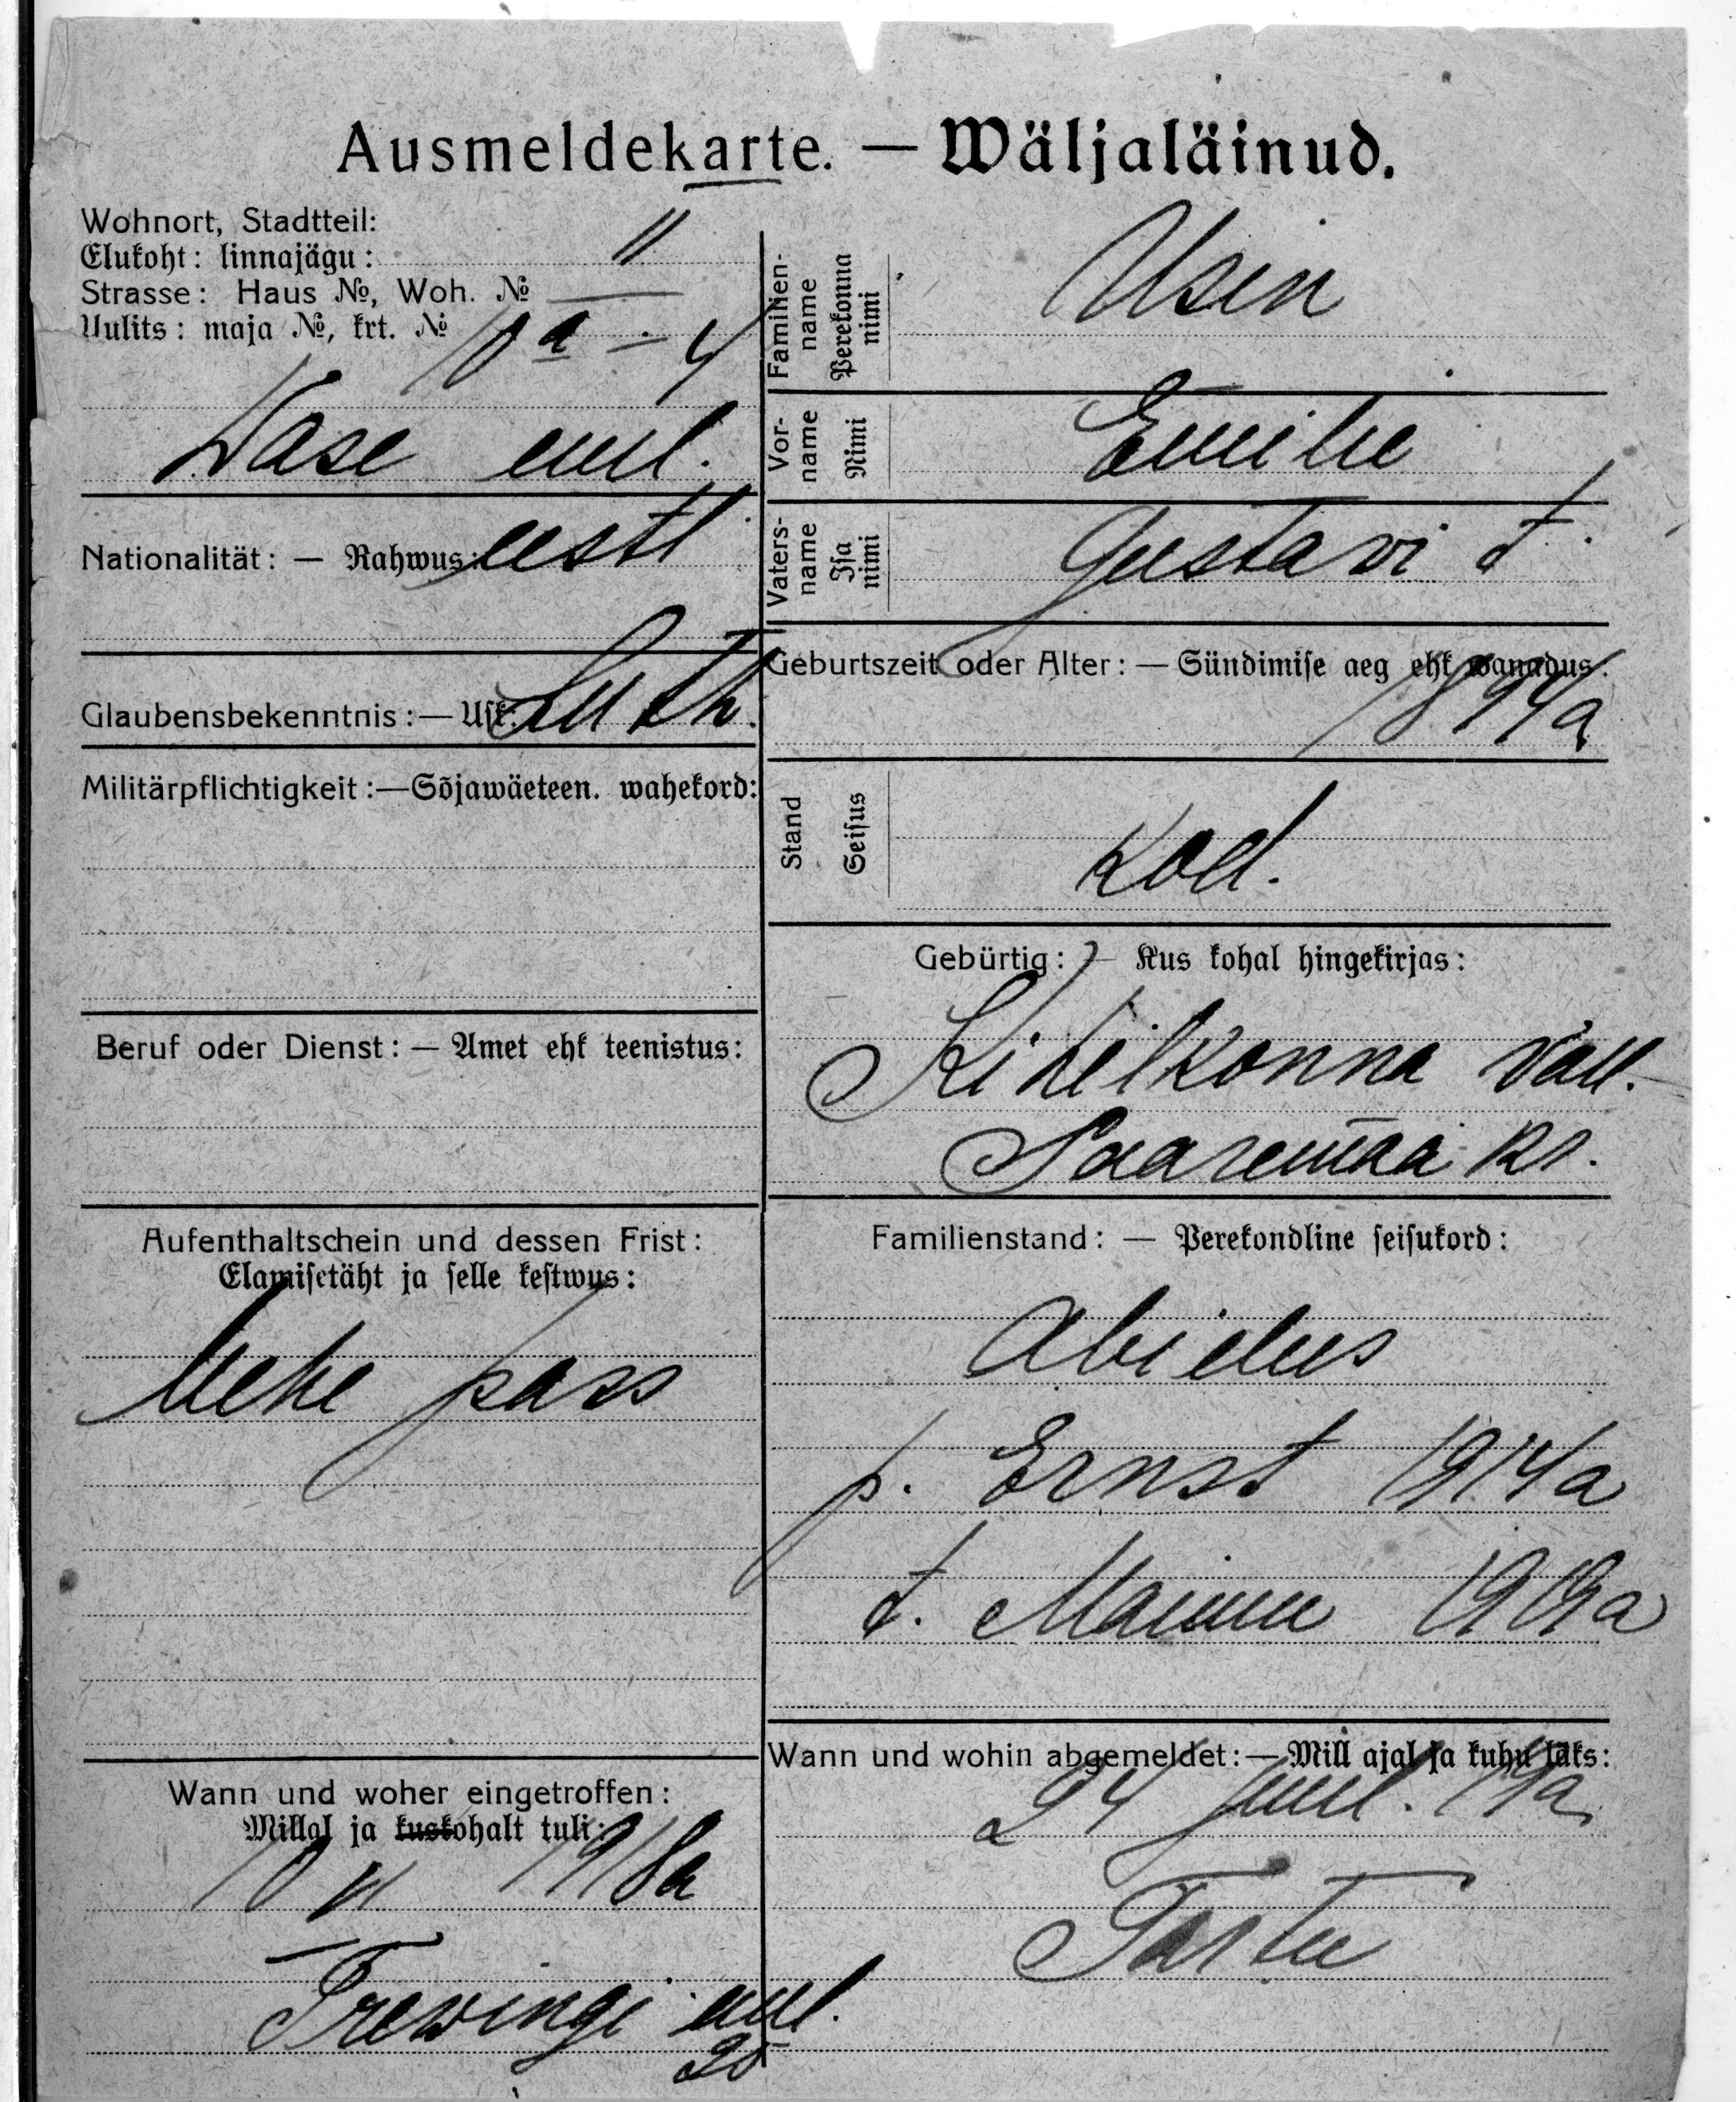 Ausmeldekarte. — Wäljaläinud.
Wohnort, Stadtteil:
Elukoht: linnajägu: II
Strasse: Haus №, Woh. №
Uulits: maja №, krt. № 10 a - 4
Wase uul.
Nationalität: — Rahwus: eestl
Glaubensbekenntnis: — Usk: Luth.
Militärpflichtigkeit: — Sõjawäeteen. wahekord:
Beruf oder Dienst: — Amet ehk teenistus:
Aufenthaltschein und dessen Frist:
Elamisetäht ja selle kestwus:
Mehe pass
Wann und woher eingetroffen:
Millal ja kuskohalt tuli:
1918a
Trewingi uul.
25
Familien-
name
Perekonna
nimi
Usin
Vor-
name
Nimi
Emilie
Vaters-
name
Isa
nimi
Gustavi t.
Geburtszeit oder Alter: — Sündimise aeg ehk wanadus:
1894a
Stand
Seisus
Kod.
Gebürtig: — Kus kohal hingekirjas:
Kihelkonna vall.
Saaremaa kr.
Familienstand: — Perekondline seisukord:
Abielus
p. Ernst 1914a
t. Maimu 1919a
Wann und wohin abgemeldet: — Mill ajal ja kuhu läks:
24 juul. 19a.
Tartu